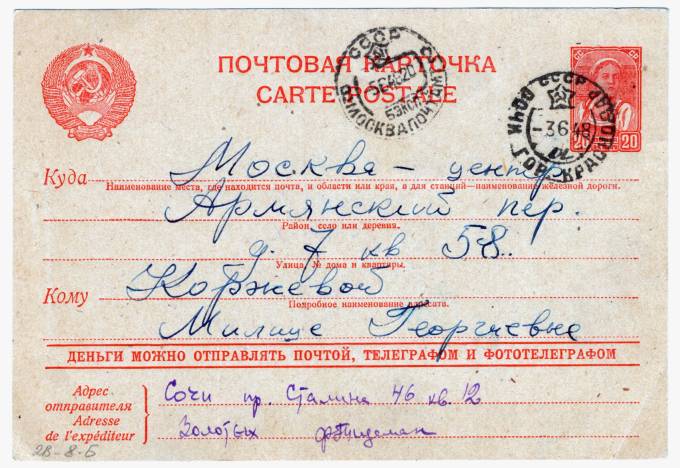 ПОЧТОВАЯ КАРТОЧКА
CARTE POSTALE
20 20
СССР МОСКВА ПОЧТАМТ
СССР
-3 6 48
Куда Москва - центр
Наименование места, где находится почта, и области или края, а для станций—наименование железной дороги.
Армянский пер.
Район, село или деревня.
д. 7 кв 58.
Улица, № дома и квартиры.
Кому Коржевой
Подробное наименование адресата.
Милице Георгиевне
ДЕНЬГИ МОЖНО ОТПРАВЛЯТЬ ПОЧТОЙ, ТЕЛЕГРАФОМ И ФОТОТЕЛЕГРАФОМ
Адрес отправителя
Adresse de l'expéditeur
Сочи пр. Сталина 46 кв. 12
Золотых
28-8-Б